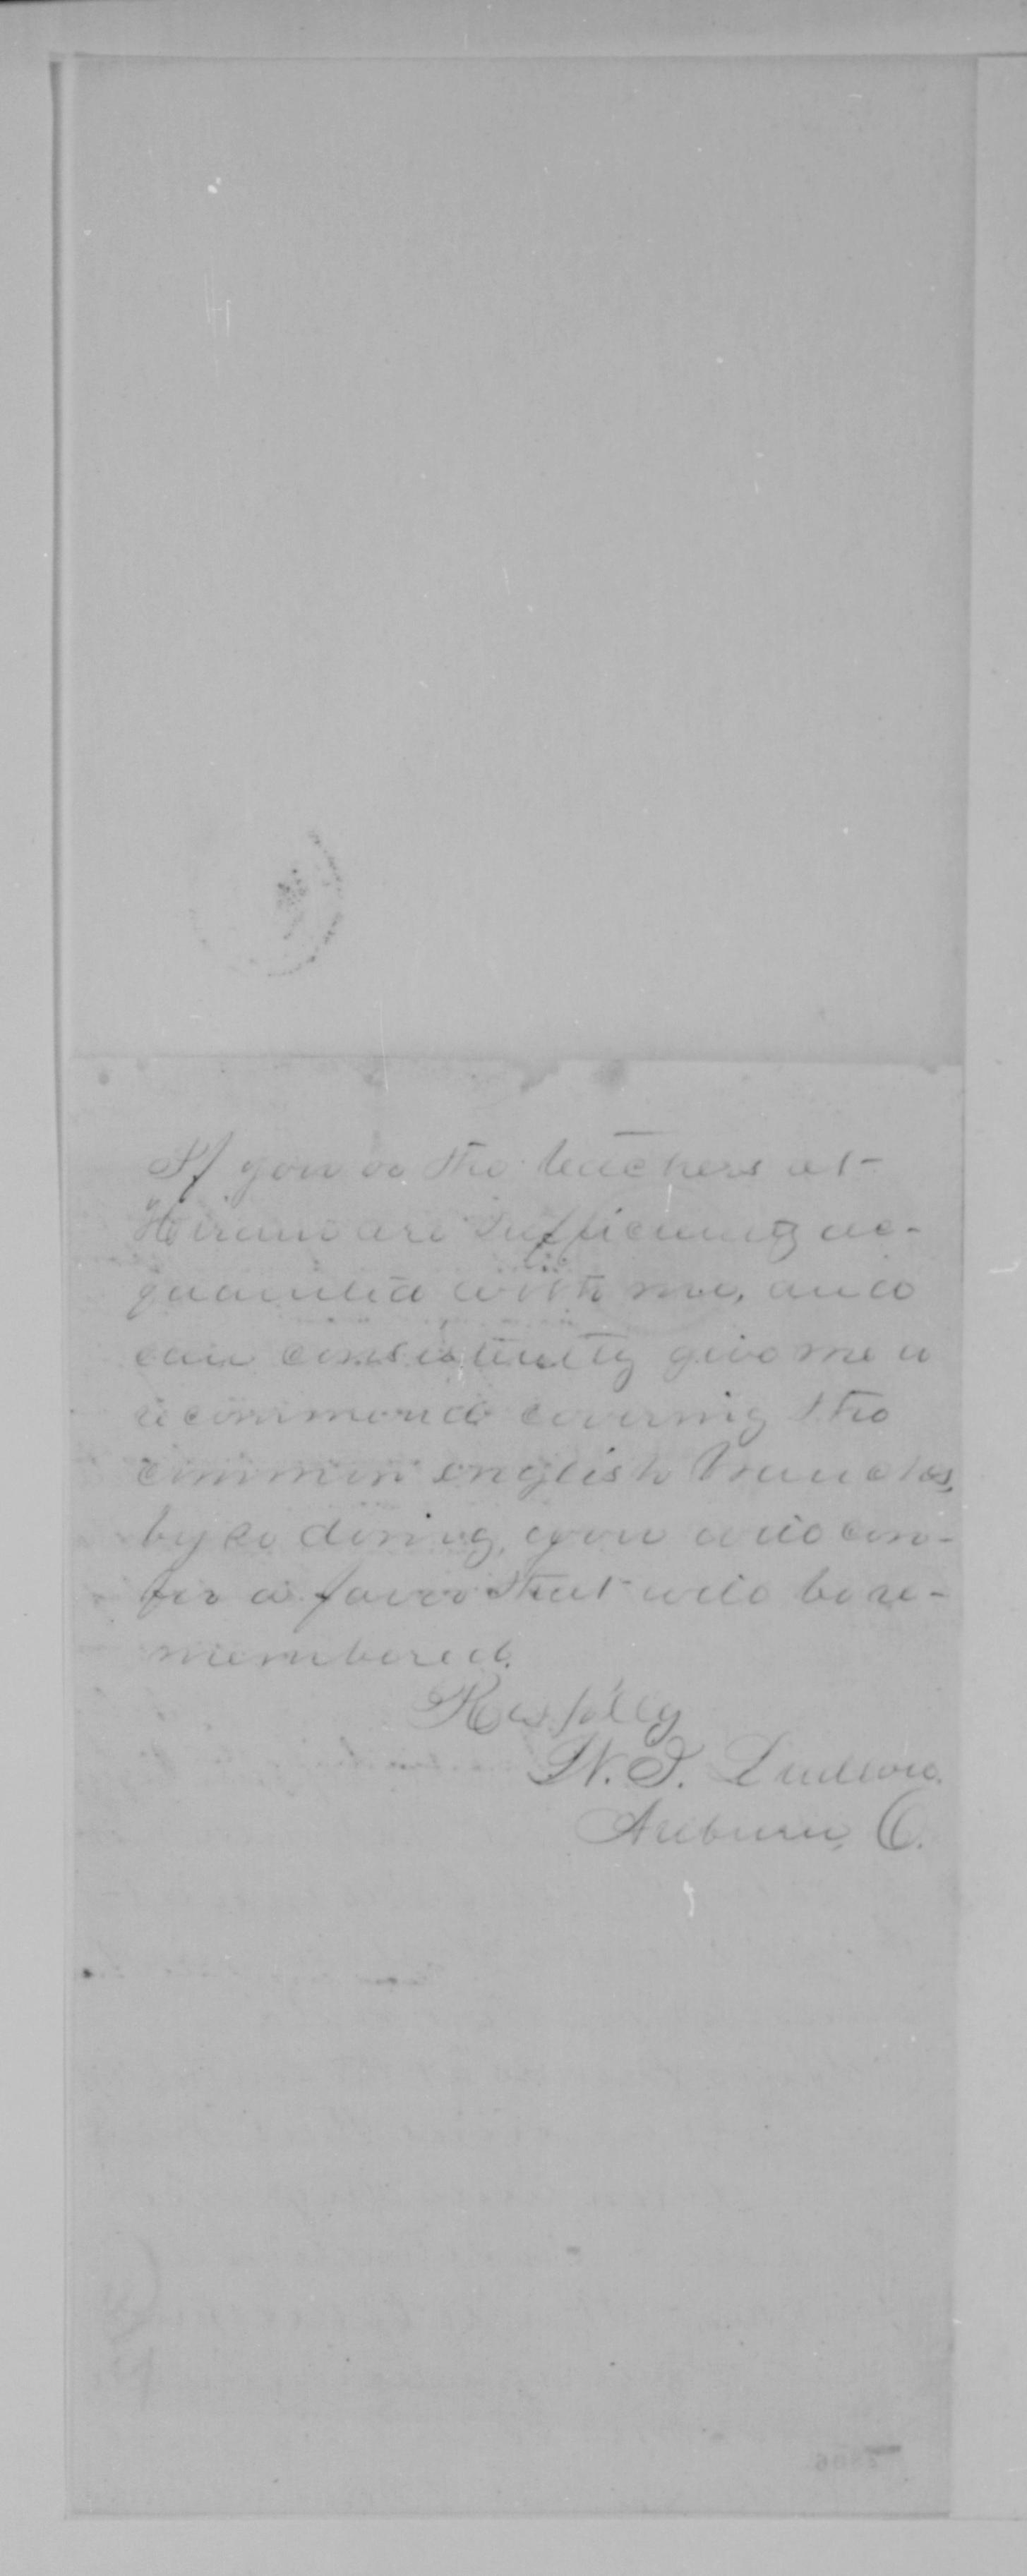 If you or the teachers at
Hiram are sufficiently ac-
quainted with me, and
can consistently give me a
recommend covering the
common english branches,
by so doing, you will con-
fer a favor that will be re-
membered.
Respflly
W. I.
Auburn, O.